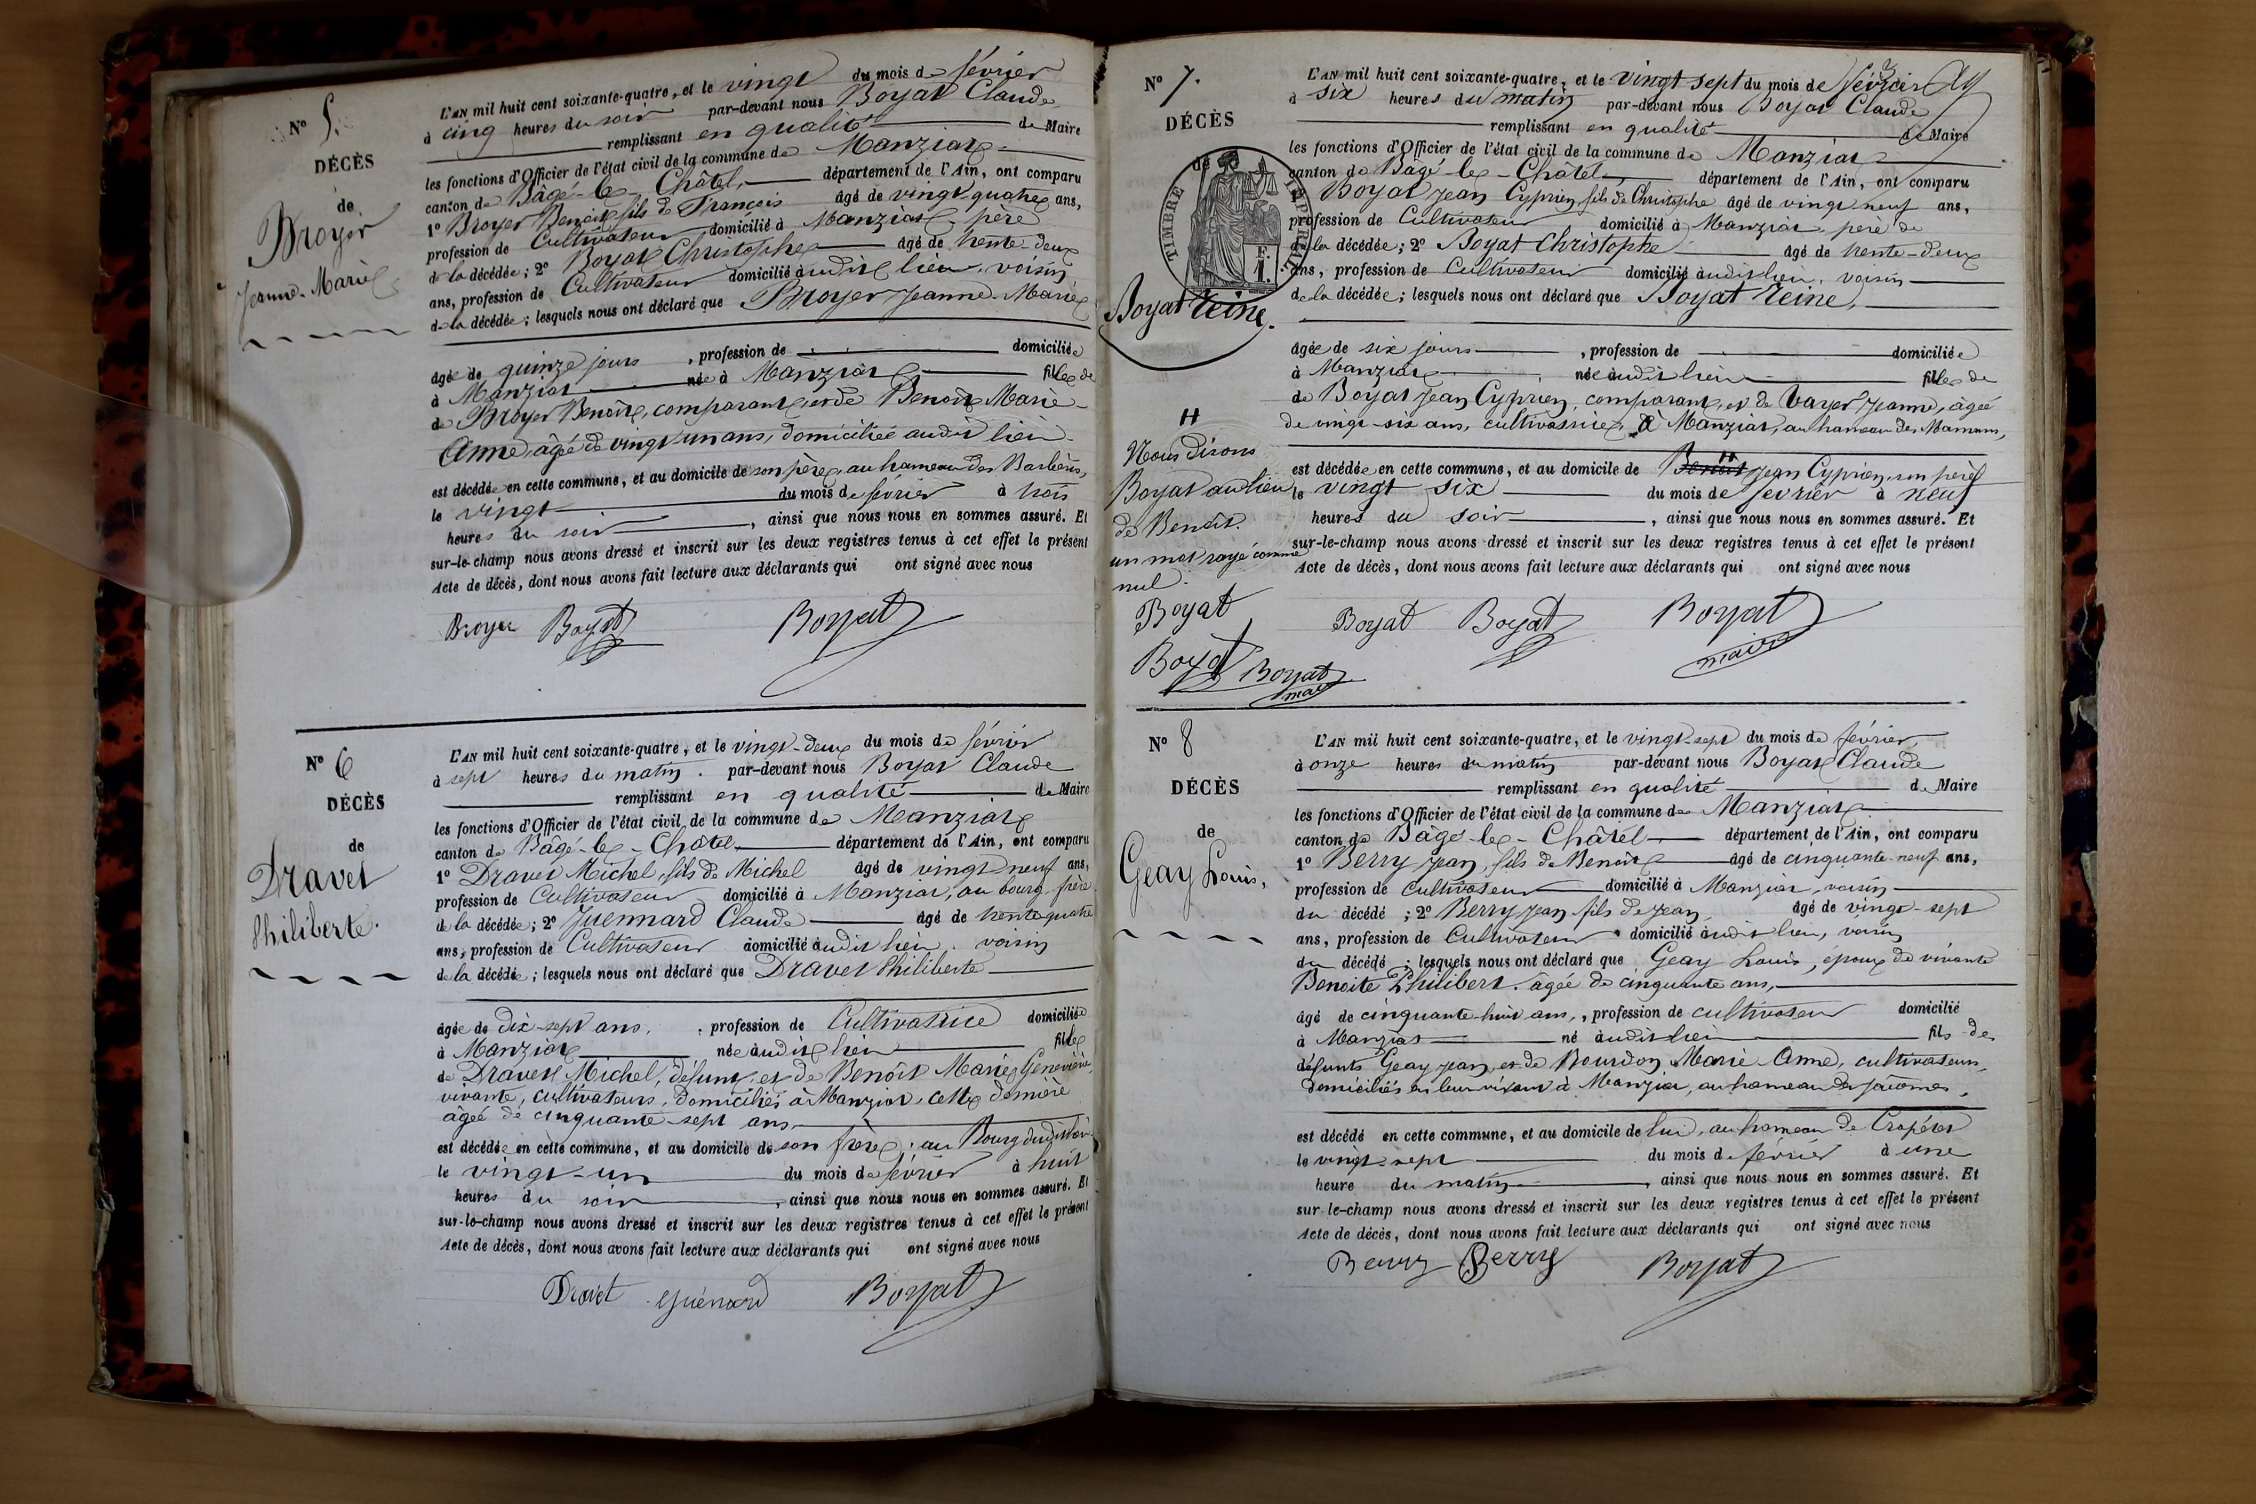 N° 5.
DÉCÈS
de
Broyer
Jeanne-Marie
L'AN mil huit cent soixante-quatre, et le vingt du mois de février
à cinq heures du soir par-devant nous Boyat Claude
remplissant en qualité de Maire
les fonctions d'Officier de l'état civil de la commune de Manziat
canton de Bâgé-le-Châtel, département de l'Ain, ont comparu
1° Broyer Benoît fils de François âgé de vingt-quatre ans,
profession de Cultivateur domicilié à Manziat père
de la décédée; 2° Boyat Christophe âgé de trente-deux
ans, profession de Cultivateur domicilié audit lieu, voisin
de la décédée; lesquels nous ont déclaré que Broyer Jeanne-Marie
âgée de quinze jours, profession de domiciliée
à Manziat née à Manziat fille de
de Broyer Benoît, comparant, et de Benoît Marie-
Anne, âgée de vingt un ans, domiciliée audit lieu.
est décédée en cette commune, et au domicile de son père, au hameau des Barbiers,
le vingt du mois de février à trois
heures du soir, ainsi que nous nous en sommes assuré. Et
sur-le-champ nous avons dressé et inscrit sur les deux registres tenus à cet effet le présent
Acte de décès, dont nous avons fait lecture aux déclarants qui ont signé avec nous
Broyer Boyat Boyat
N° 6
DÉCÈS
de
Dravet
Philiberte.
L'AN mil huit cent soixante-quatre, et le vingt-deux du mois de février
à sept heures du matin. par-devant nous Boyat Claude
remplissant en qualité de Maire
les fonctions d'Officier de l'état civil de la commune de Manziat
canton de Bâgé-le-Châtel département de l'Ain, ont comparu
1° Dravet Michel, fils de Michel âgé de vingt neuf ans,
profession de Cultivateur domicilié à Manziat, au bourg, frère
de la décédée; 2° Juennard Claude âgé de trente quatre
ans, profession de Cultivateur domicilié audit lieu, voisin
de la décédée; lesquels nous ont déclaré que Dravet Philiberte
âgée de dix-sept ans, profession de Cultivatrice domiciliée
à Manziat née audit lieu fille
de Dravet Michel, défunt, et de Benoît Marie Geneviève,
vivante, cultivateurs, domiciliés à Manziat, cette dernière
âgée de cinquante-sept ans
est décédée en cette commune, et au domicile de son frère, au Bourg dudit lieu
le vingt-un du mois de février à huit
heures du soir, ainsi que nous nous en sommes assuré. Et
sur-le-champ nous avons dressé et inscrit sur les deux registres tenus à cet effet le présent
Acte de décès, dont nous avons fait lecture aux déclarants qui ont signé avec nous
Dravet Guénard Boyat
N° 7.
DÉCÈS
de
TIMBRE IMPÉRIAL
F.
1.
Boyat Reine.
H
Nous disons
Boyat au lieu
de Benoît.
un mot rayé comme
nul.
Boyat
Boyat Boyat
maire
L'AN mil huit cent soixante-quatre, et le vingt sept du mois de Février
à six heures du matin par-devant nous Boyat Claude
remplissant en qualité de Maire
les fonctions d'Officier de l'état civil de la commune de Manziat
canton de Bâgé-le-Châtel, département de l'Ain, ont comparu
Boyat Jean Cyprien, fils de Christophe âgé de vingt neuf ans,
profession de Cultivateur domicilié à Manziat père de
de la décédée; 2° Boyat Christophe âgé de trente-deux
ans, profession de Cultivateur domicilié audit lieu, voisin
de la décédée; lesquels nous ont déclaré que Boyat Reine,
âgée de six jours, profession de domiciliée
à Manziat, née audit lieu fille de
de Boyat Jean Cyprien, comparant, et de Jeanne, âgée
de vingt-six ans, cultivatrice, à Manziat, au hameau des Mamans,
est décédée en cette commune, et au domicile de Benoît H Jean Cyprien, son père
le vingt six du mois de février à neuf
heures du soir, ainsi que nous nous en sommes assuré. Et
sur-le-champ nous avons dressé et inscrit sur les deux registres tenus à cet effet le présent
Acte de décès, dont nous avons fait lecture aux déclarants qui ont signé avec nous
Boyat Boyat Boyat
maire
N° 8
DÉCÈS
de
Geay Louis,
L'AN mil huit cent soixante-quatre, et le vingt-sept du mois de février
à onze heures du matin par-devant nous Boyat Claude
remplissant en qualité de Maire
les fonctions d'Officier de l'état civil de la commune de Manziat
canton de Bâgé-le-Châtel département de l'Ain, ont comparu
1° Berry Jean, fils de Benoît âgé de cinquante-neuf ans,
profession de Cultivateur domicilié à Manziat, voisin
du décédé; 2° Berry Jean fils de Jean, âgé de vingt-sept
ans, profession de Cultivateur domicilié audit lieu, voisin
du décédé; lesquels nous ont déclaré que Geay Louis, époux de vivante
Benoite Philibert, âgée de cinquante ans,
âgé de cinquante-huit ans, profession de cultivateur domicilié
à Manziat né audit lieu fils de
défunts Geay Jean, et de Bourdon Marie-Anne, cultivateurs,
domiciliés en leur vivant à Manziat, au hameau des Jacômes,
est décédé en cette commune, et au domicile de lui, au hameau de
le vingt-sept du mois de février à une
heure du matin, ainsi que nous nous en sommes assuré. Et
sur-le-champ nous avons dressé et inscrit sur les deux registres tenus à cet effet le présent
Acte de décès, dont nous avons fait lecture aux déclarants qui ont signé avec nous
Berry Berry Boyat